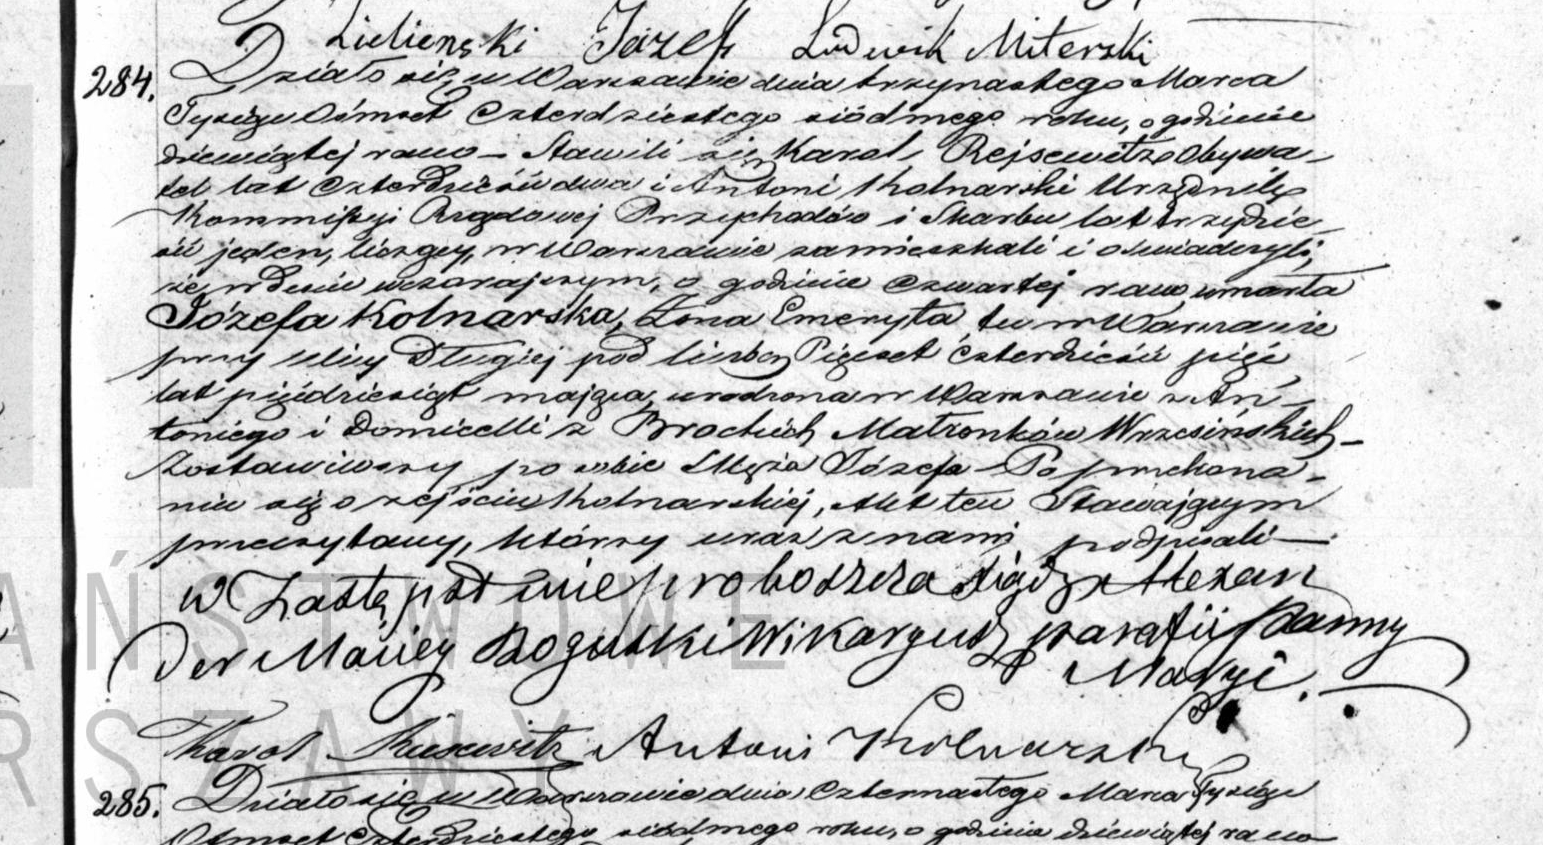 Zieliński Józef Ludwik Miterski
284. Działo się w Warszawie dnia trzynastego Marca
Tysiąc Ośmset Czterdziestego siódmego roku, o godzinie
dziewiątej rano – Stawili się Karol Rejsewitz Obywa-
tel lat Czterdzieści dwa i Antoni Kolnarski Urzędnik
Kommissyi Rządowej Przychodów i Skarbu lat trzydzie-
ści jeden, liczący, w Warszawie zamieszkali i oświadczyli,
że w dniu wczorajszym, o godzinie Czwartej rano, umarła
Józefa Kolnarska, Żona Emeryta tu w Warszawie
przy ulicy Długiej pod liczbą Pięćset czterdzieści pięć
lat pięćdziesiąt mająca, urodzona w Warszawie z An-
toniego i Domicelli z Brockich Małżonków Wrzesińskich –
Zostawiwszy po sobie Męża Józefa – Po przekona-
niu się o zejściu Kolnarskiej, Akt ten Stawającym
przeczytany, którzy wraz z nami podpisali –
w Zastępstwie proboszcza Xiądz Alexan
der Maciey Rogulski Wikaryusz parafii Panny
Maryi.
Karol Antoni Kolnarski
285. Działo się w Warszawie dnia Czternastego Marca Tysiąc
Ośmset Czterdziestego siódmego roku, o godzinie dziewiątej rano
PAŃSTWOWE
WARSZAWY